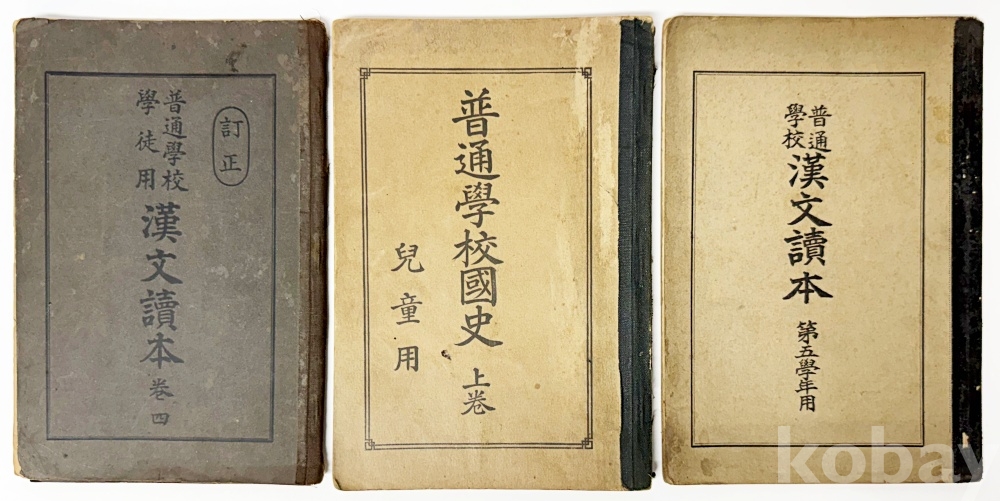 訂正
普通學校
學徒用
漢文讀本 卷四
普通學校國史 上卷
兒童用
普通
學校
漢文讀本 第五學年用
kobay